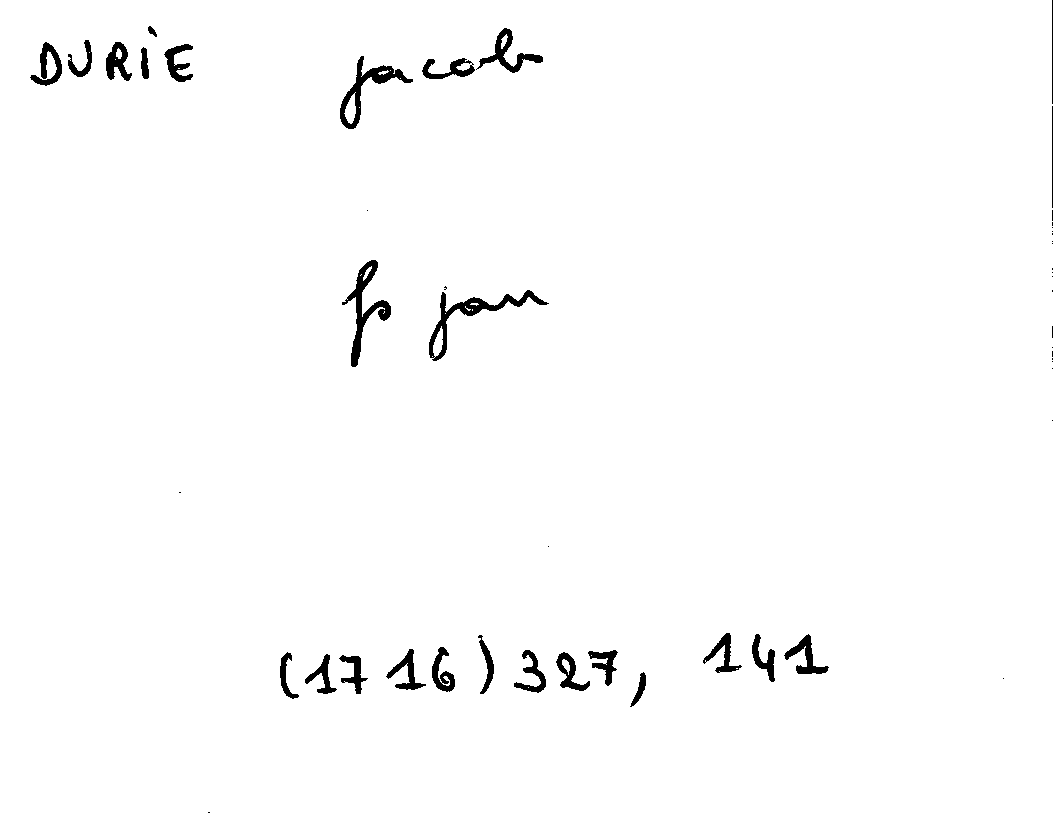 DURIE jacob
fs jan
(1716) 327, 141